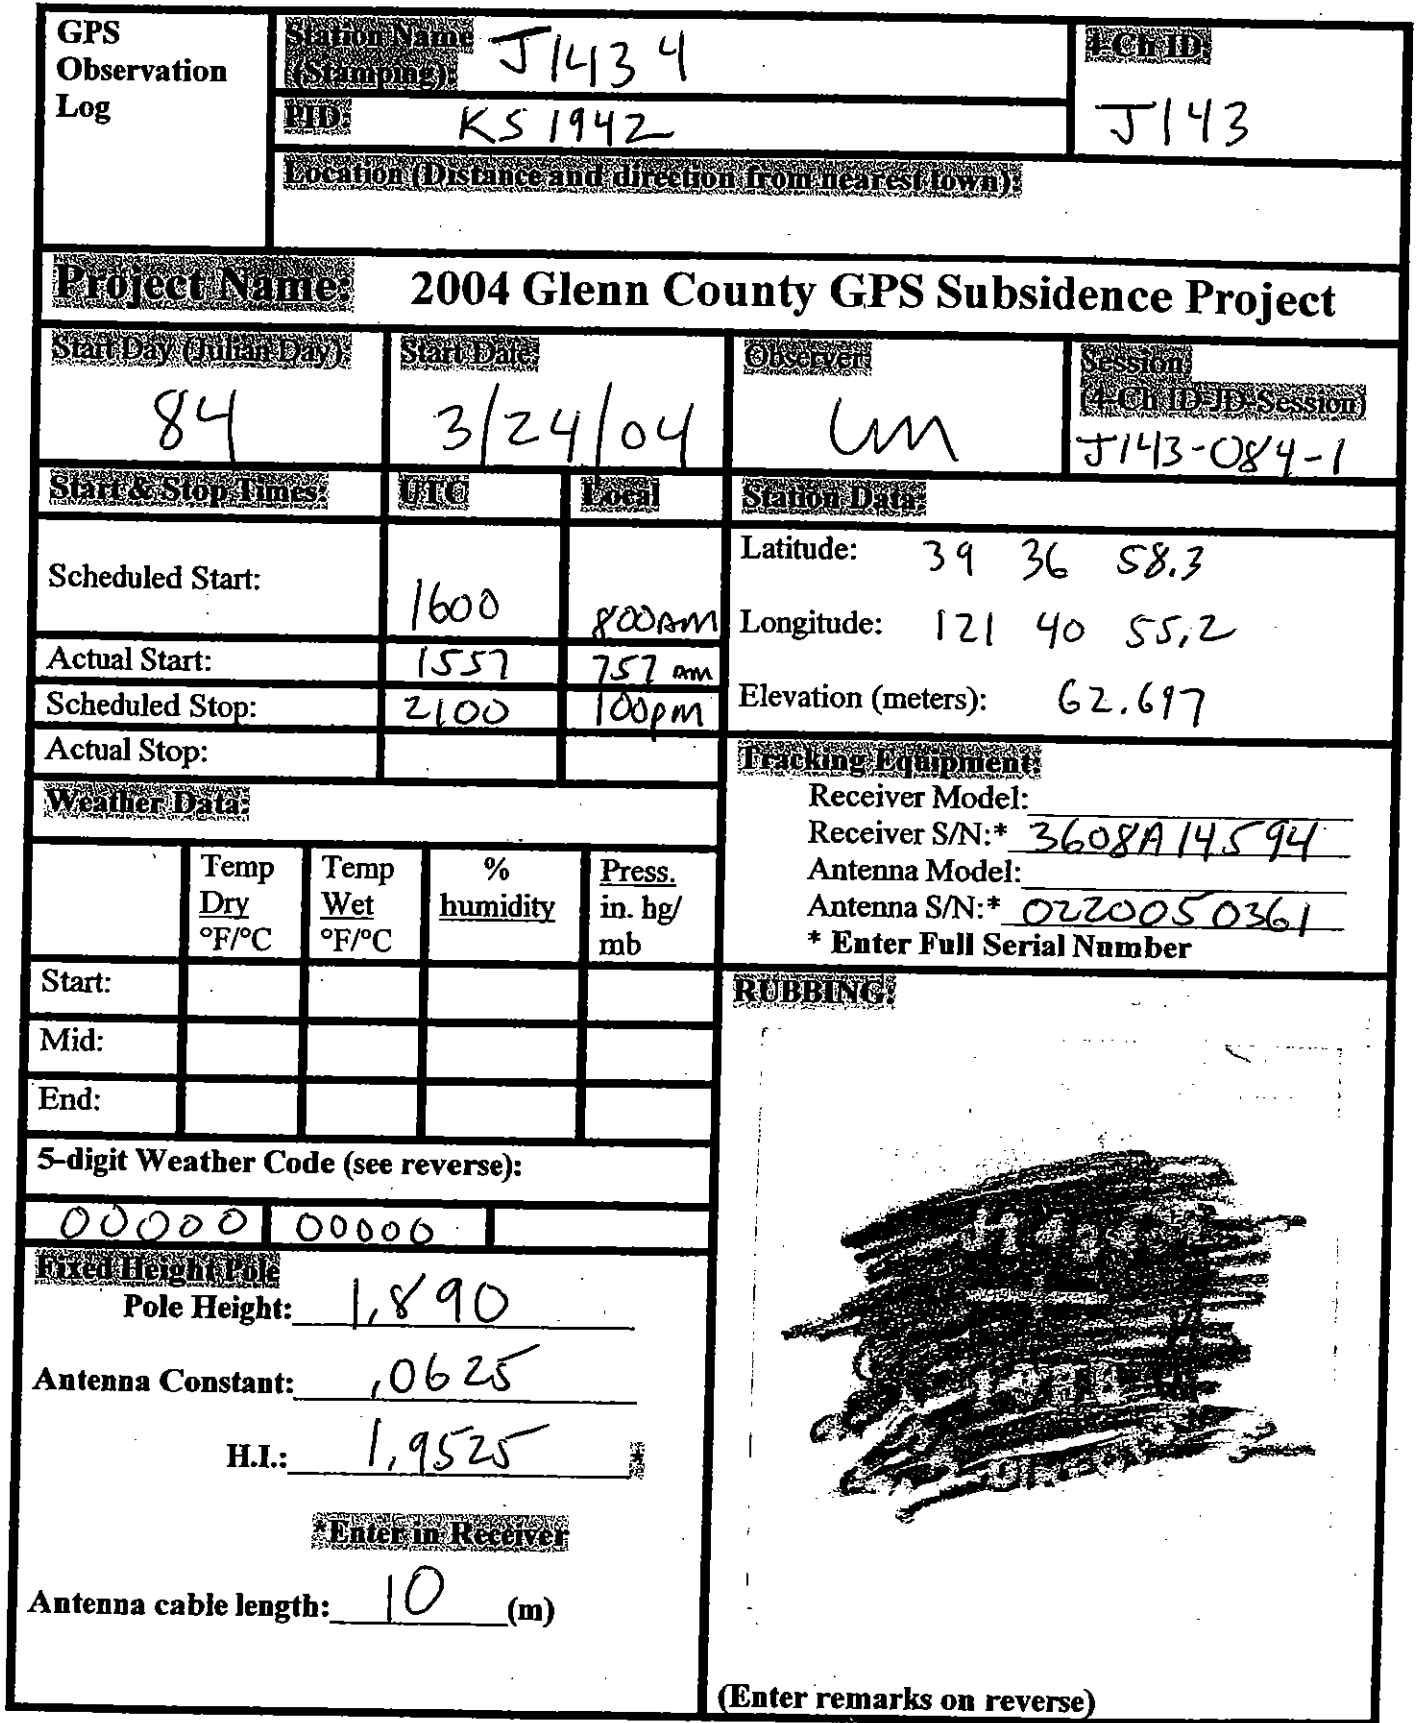 GPS
Observation
Log
Station Name
(Stamping): J1434
PID: KS1942
4-Ch ID:
J143
Location (Distance and direction from nearest town):
Project Name: 2004 Glenn County GPS Subsidence Project
Start Day (Julian Day):
84
Start Date:
3/24/04
Observer:
Session:
(4-Ch ID-JD-Session)
J143-084-1
Start & Stop Times: UTC Local
Scheduled Start: 1600 800AM
Actual Start: 1557 757 am
Scheduled Stop: 2100 100pm
Actual Stop:
Station Data:
Latitude: 39 36 58.3
Longitude: 121 40 55,2
Elevation (meters): 62.697
Tracking Equipment:
Receiver Model:
Receiver S/N:* 3608A14594
Antenna Model:
Antenna S/N:* 0220050361
* Enter Full Serial Number
Weather Data:
Temp
Dry
°F/°C
Temp
Wet
°F/°C
%
humidity
Press.
in. hg/
mb
Start:
Mid:
End:
5-digit Weather Code (see reverse):
00000 00000
Fixed Height Pole
Pole Height: 1,890
Antenna Constant: ,0625
H.I.: 1,9525 *
*Enter in Receiver
Antenna cable length: 10 (m)
RUBBING:
(Enter remarks on reverse)